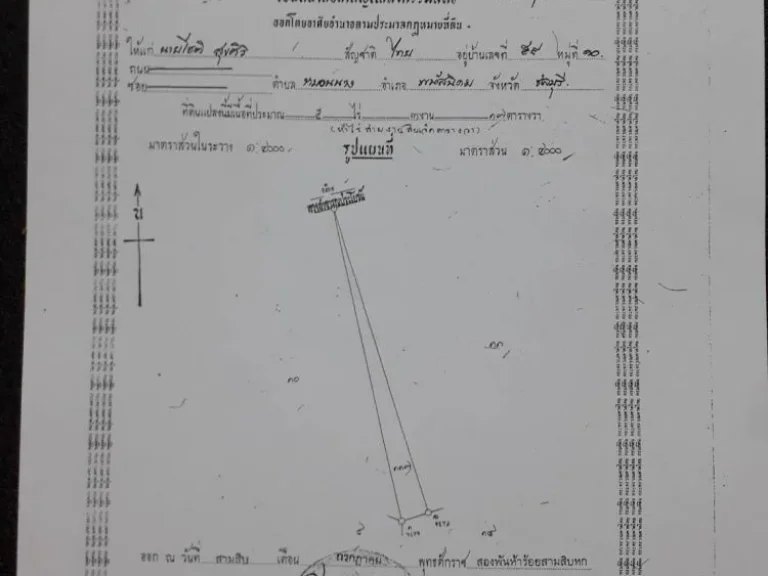 ออกโดยอาศัยอำนาจตามประมวลกฎหมายที่ดิน
ให้แก่ นายโชติ สุขศิริ สัญชาติ ไทย อยู่บ้านเลขที่ ๕๕ หมู่ที่ ๑๐
ถนน
ซอย ตำบล หมอนนาง อำเภอ พนัสนิคม จังหวัด ชลบุรี
ที่ดินแปลงนี้มีเนื้อที่ประมาณ ๕ ไร่ ๓ งาน ๑๗ ตารางวา
(ห้าไร่สามงานสิบเจ็ดตารางวา)
มาตราส่วนในระวาง ๑:๔๐๐๐ รูปแผนที่ มาตราส่วน ๑:๔๐๐๐
น
ทางสาธารณประโยชน์
๑๐
ออก ณ วันที่ สามสิบ เดือน กรกฎาคม พุทธศักราช สองพันห้าร้อยสามสิบหก